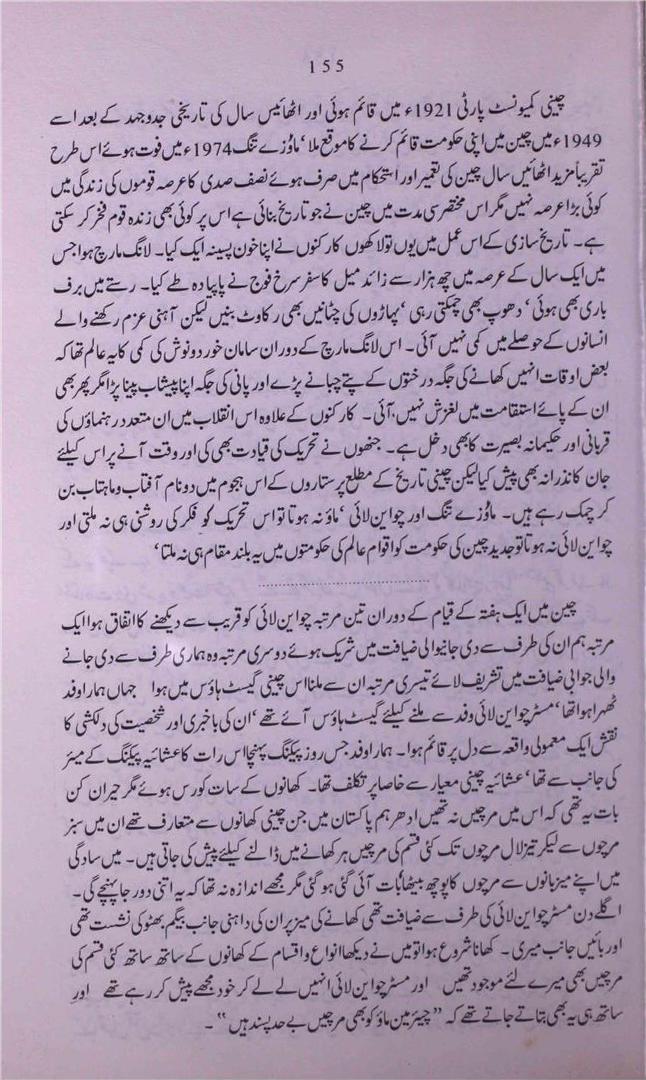 155
چینی کمیونسٹ پارٹی 1921ء میں قائم ہوئی اور اٹھائیس سال کی تاریخی جدوجہد کے بعد اسے
1949ء میں چین میں اپنی حکومت قائم کرنے کا موقع ملا، ماؤزے تنگ 1974ء میں فوت ہوئے اس طرح
تقریباً مزید اٹھائیں سال چین کی تعمیر اور استحکام میں صرف ہوئے نصف صدی کا عرصہ قوموں کی زندگی میں
کوئی بڑا عرصہ نہیں مگر اس مختصر سی مدت میں چین نے جو تاریخ بنائی ہے اس پر کوئی بھی زندہ قوم فخر کر سکتی
ہے۔ تاریخ سازی کے اس عمل میں یوں تو لاکھوں کارکنوں نے اپنا خون پسینہ ایک کیا۔ لانگ مارچ ہوا جس
میں ایک سال کے عرصہ میں چھ ہزار سے زائد میل کا سفر سرخ فوج نے پاپیادہ طے کیا۔ رستے میں برف
باری بھی ہوئی، دھوپ بھی چمکتی رہی، پہاڑوں کی چٹانیں بھی رکاوٹ بنیں لیکن آہنی عزم رکھنے والے
انسانوں کے حوصلے میں کمی نہیں آئی۔ اس لانگ مارچ کے دوران سامان خوردونوش کی کمی کا یہ عالم تھا کہ
بعض اوقات انہیں کھانے کی جگہ درختوں کے پتے چبانے پڑے اور پانی کی جگہ اپنا پیشاب پینا پڑا مگر پھر بھی
ان کے پائے استقامت میں لغزش نہیں آئی۔ کارکنوں کے علاوہ اس انقلاب میں ان متعدد رہنماؤں کی
قربانی اور حکیمانہ بصیرت کا بھی دخل ہے۔ جنھوں نے تحریک کی قیادت بھی کی اور وقت آنے پر اس کیلئے
جان کا نذرانہ بھی پیش کیا لیکن چینی تاریخ کے مطلع پر ستاروں کے اس ہجوم میں دو نام آفتاب و ماہتاب بن
کر چمک رہے ہیں۔ ماؤزے تنگ اور چواین لائی، ماؤ نہ ہوتا تو اس تحریک کو فکر کی روشنی ہی نہ ملتی اور
چواین لائی نہ ہوتا تو جدید چین کی حکومت کو اقوام عالم کی حکومتوں میں یہ بلند مقام ہی نہ ملتا،
چین میں ایک ہفتہ کے قیام کے دوران تین مرتبہ چواین لائی کو قریب سے دیکھنے کا اتفاق ہوا ایک
مرتبہ ہم ان کی طرف سے دی جانیوالی ضیافت میں شریک ہوئے دوسری مرتبہ وہ ہماری طرف سے دی جانے
والی جوابی ضیافت میں تشریف لائے تیسری مرتبہ ان سے ملنا اس چینی گیسٹ ہاؤس میں ہوا جہاں ہمارا وفد
ٹھہرا ہوا تھا، مسٹر چواین لائی وفد سے ملنے کیلئے گیسٹ ہاؤس آئے تھے، ان کی باخبری اور شخصیت کی دلکشی کا
نقش ایک معمولی واقعہ سے دل پر قائم ہوا۔ ہمارا وفد جس روز پیکنگ پہنچا اس رات کا عشائیہ پیکنگ کے میئر
کی جانب سے تھا، عشائیہ چینی معیار سے خاصا پر تکلف تھا۔ کھانوں کے سات کورس ہوئے مگر حیران کن
بات یہ تھی کہ اس میں مرچیں نہ تھیں ادھر ہم پاکستان میں جن چینی کھانوں سے متعارف تھے ان میں سبز
مرچوں سے لیکر تیز لال مرچوں تک کئی قسم کی مرچیں ہر کھانے میں ڈالنے کیلئے پیش کی جاتی ہیں۔ میں سادگی
میں اپنے میزبانوں سے مرچوں کا پوچھ بیٹھا بات آئی گئی ہو گئی مگر مجھے اندازہ نہ تھا کہ یہ اتنی دور جا پہنچے گی۔
اگلے دن مسٹر چواین لائی کی طرف سے ضیافت تھی کھانے کی میز پر ان کی داہنی جانب بیگم بھٹو کی نشست تھی
اور بائیں جانب میری۔ کھانا شروع ہوا تو میں نے دیکھا انواع و اقسام کے کھانوں کے ساتھ ساتھ کئی قسم کی
مرچیں بھی میرے لئے موجود تھیں اور مسٹر چواین لائی انہیں لے لے کر خود مجھے پیش کر رہے تھے اور
ساتھ ہی یہ بھی بتاتے جاتے تھے کہ "چیئرمین ماؤ کو بھی مرچیں بے حد پسند ہیں"۔